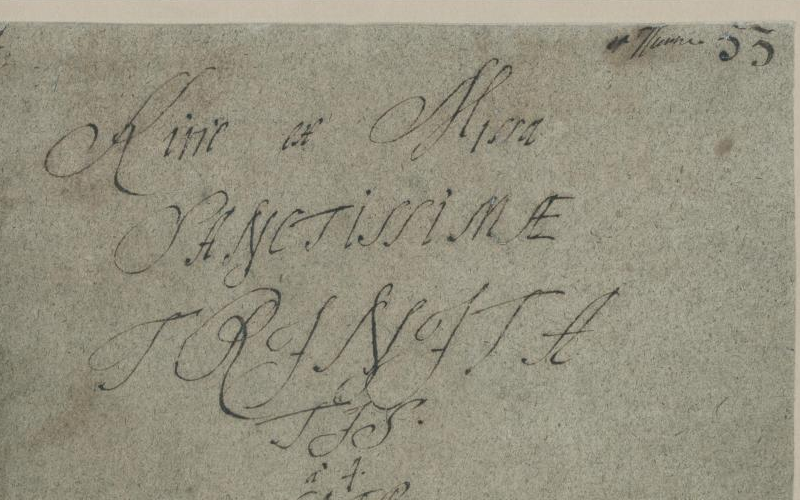 55
Kirie ex Missa
SANCTISSIMÆ
TRINITA
TIS.
à 4.